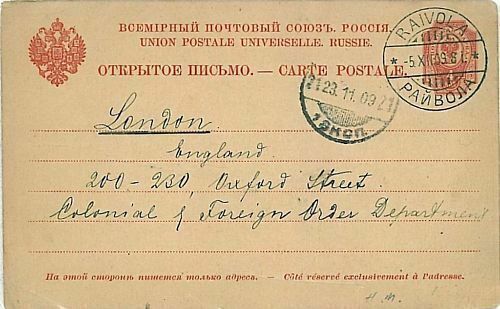 ВСЕМІРНЫЙ ПОЧТОВЫЙ СОЮЗЪ. РОССІЯ.
UNION POSTALE UNIVERSELLE. RUSSIE.
ОТКРЫТОЕ ПИСЬМО. — CARTE POSTALE.
RAIVOLA
РАЙВОЛА
23.11.09
London.
England.
200-230, Oxford Street.
Colonial & Foreign Order Department
На этой сторонѣ пишется только адресъ. — Côté réservé exclusivement à l'adresse.
H.M.